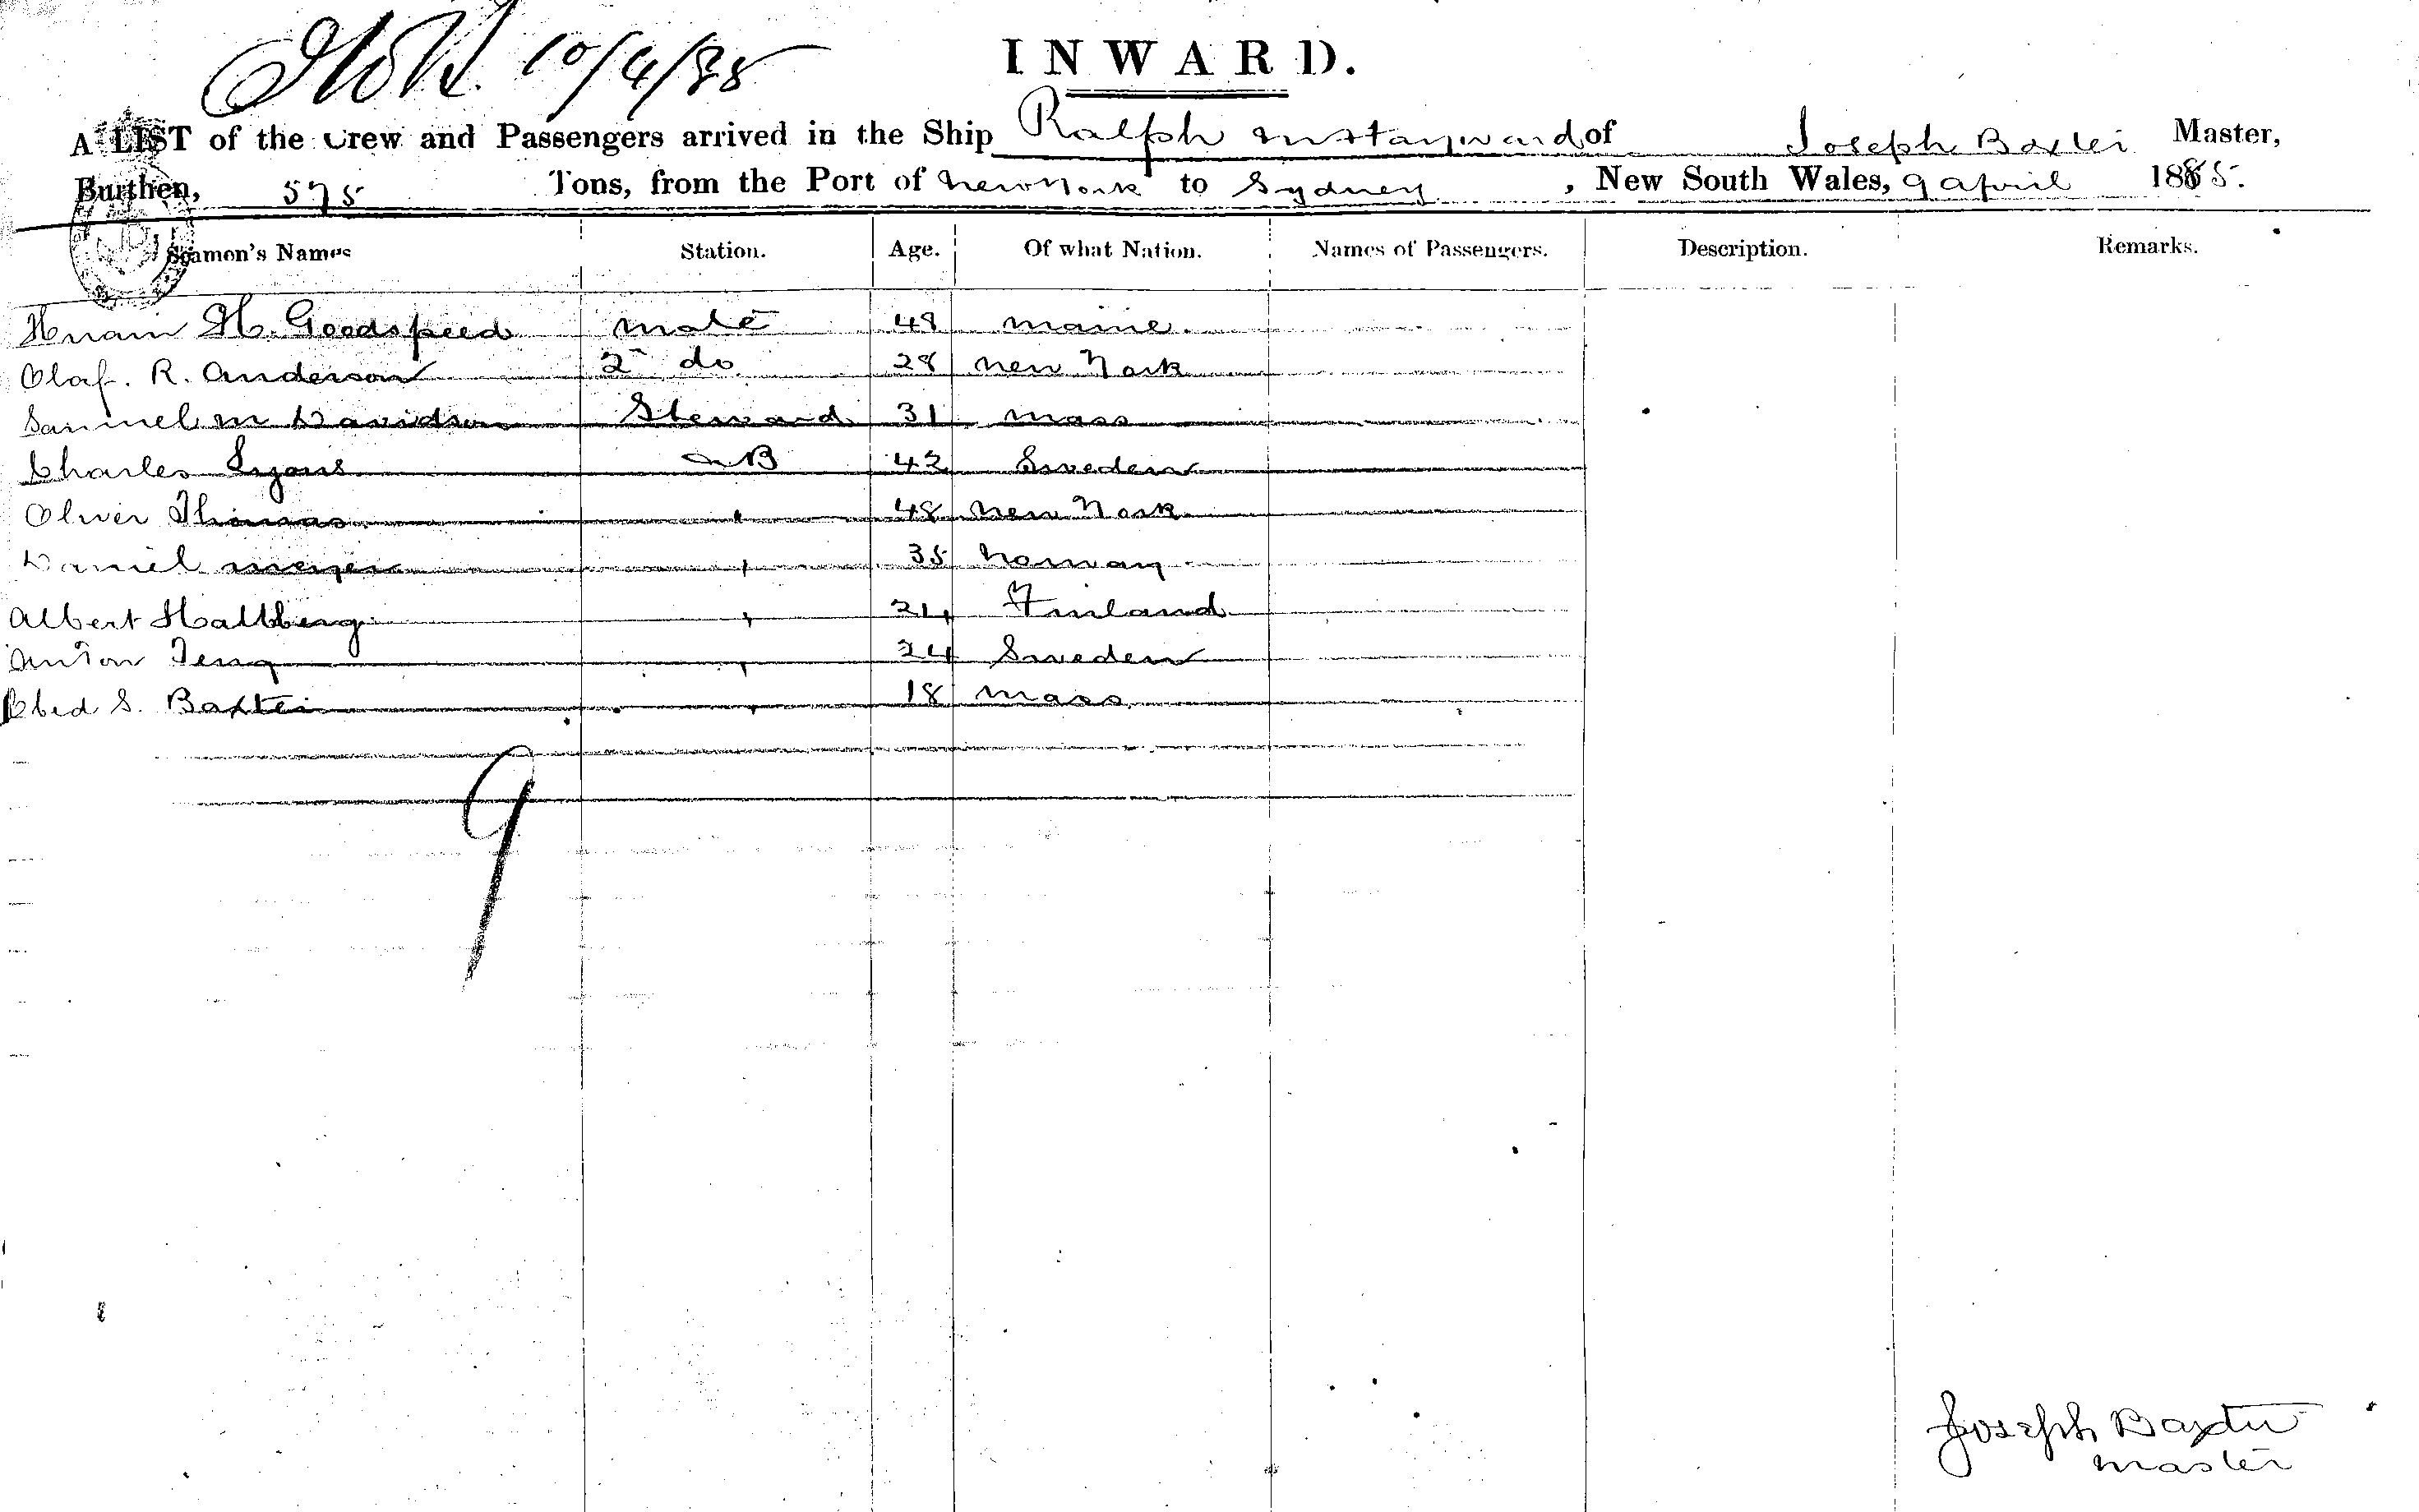 10/4/85
INWARD.
A LIST of the Crew and Passengers arrived in the Ship Ralph M Hayward of Joseph Baxter Master,
Burthen, 575 Tons, from the Port of New York to Sydney, New South Wales, 9 April 1885.
Seamen's Names Station. Age. Of what Nation. Names of Passengers. Description. Remarks.
Hiram H. Goodspeed mate 49 maine
Olaf. R. Anderson 2 do 28 New York
Samuel M Davidson Steward 31 mass
Charles Lyons AB 42 Sweden
Oliver Thomas " 48 New York
Daniel " 35 Norway
Albert Hallberg " 24 Finland
Anton " 24 Sweden
Obed S. Baxter " 18 mass
9
Joseph Baxter
master